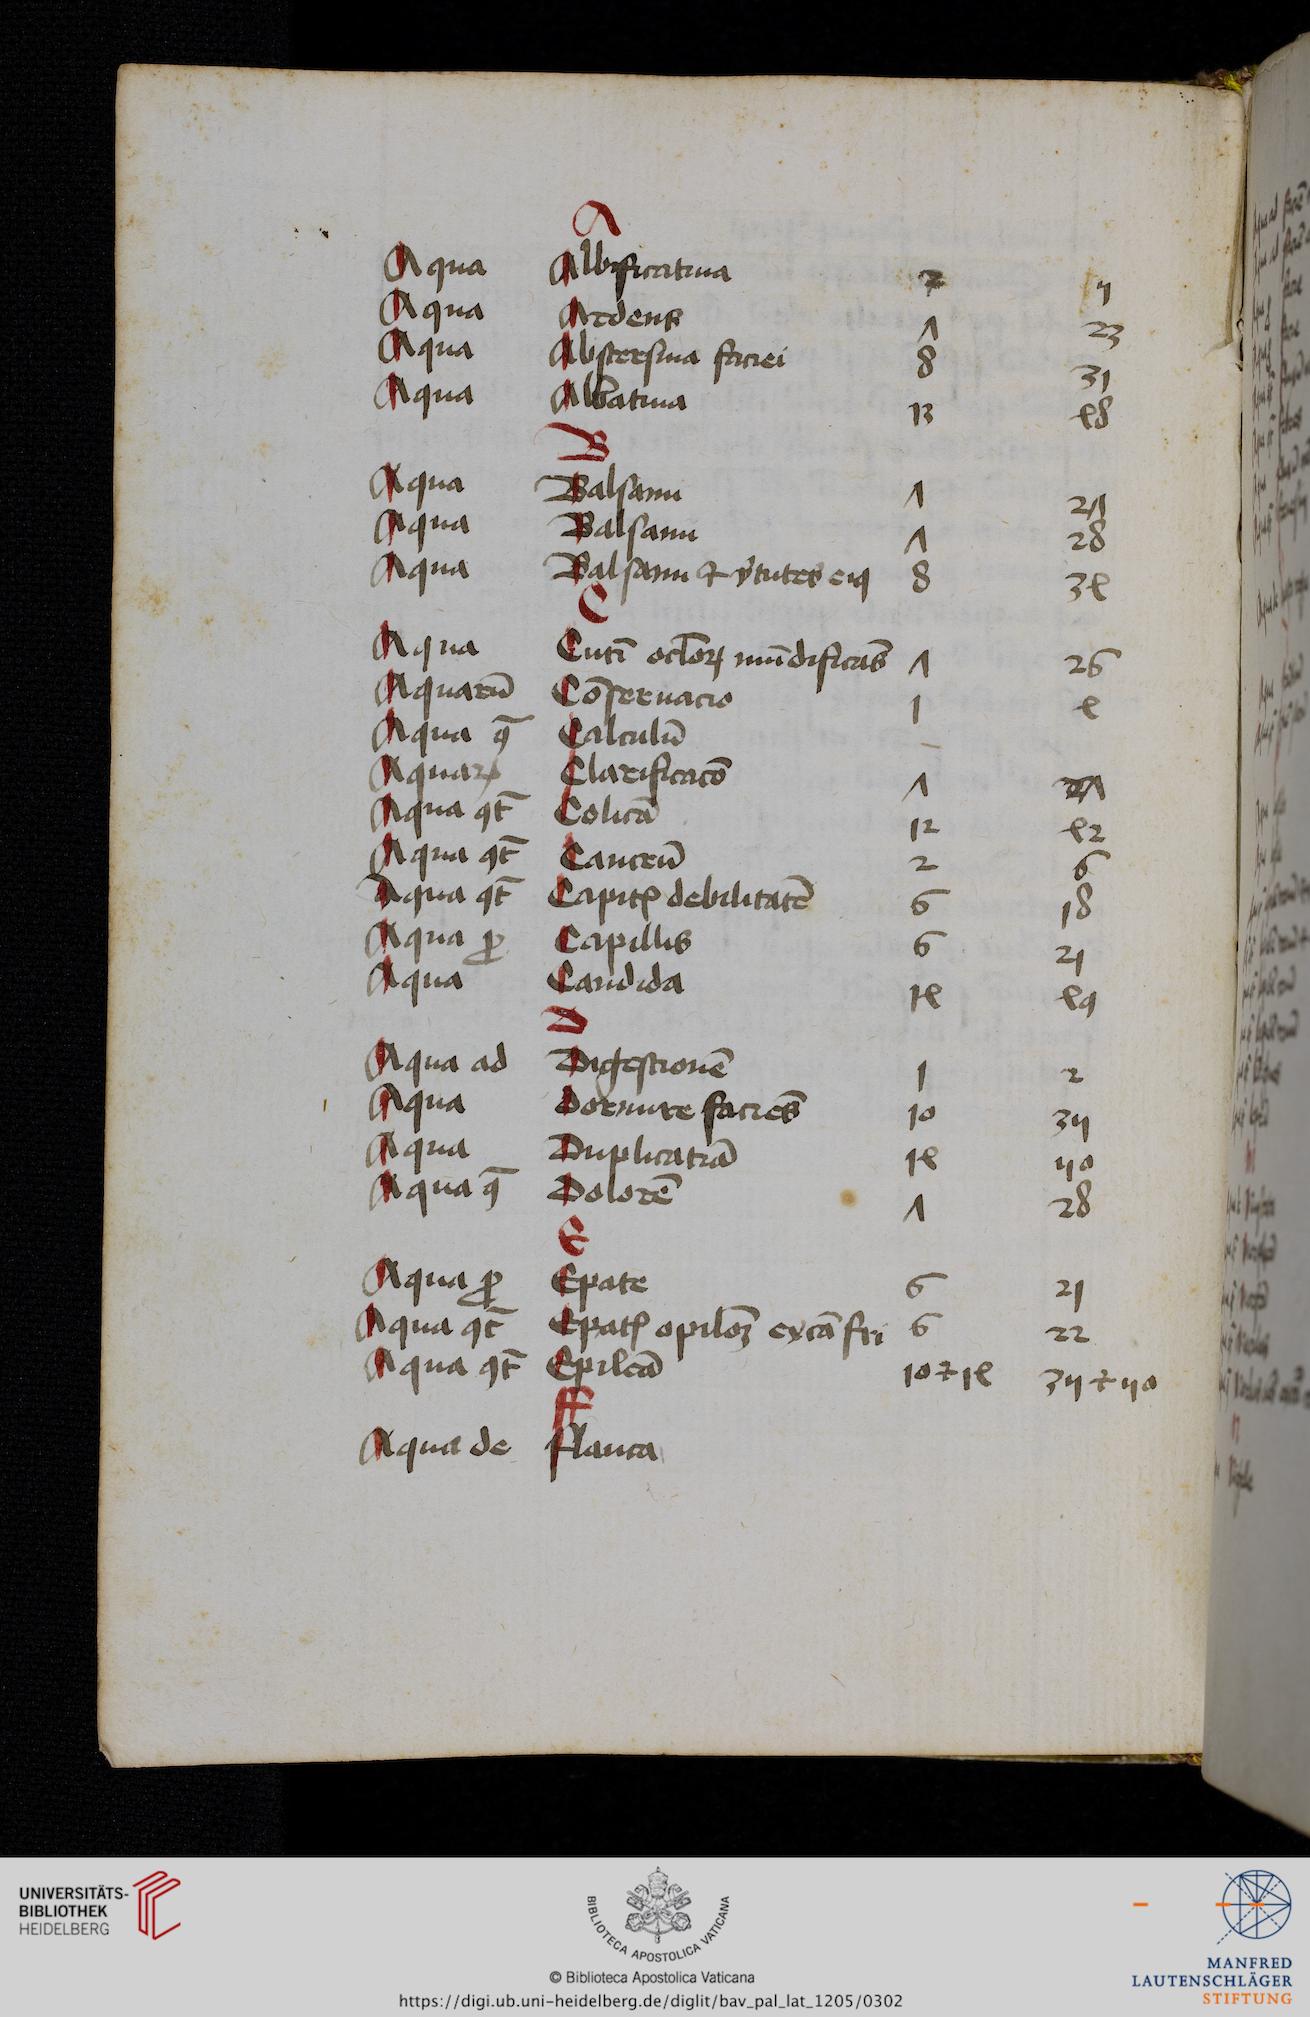 A
Aqua Albificatiua 7 5
Aqua Ardens Λ 23
Aqua Abstersiua faciei 8 31
Aqua Albatiua 13 48
B
Aqua Balsami Λ 2Λ
Aqua Balsami Λ 28
Aqua Balsami et v̓tutes eiꝰ 8 34
C
Aqua Cuti᷒ oclōꝝ mūdificās Λ 26
Aquarū Cōseruacio 1 4
Aqua q̄ Calculū –
Aquaꝝ Clarificacō Λ Λ
Aqua qt̄ Colicā 12 42
Aqua qt̄ Cancrū 2 6
Aqua qt̄ Capitꝭ debilitatē 6 18
Aqua ꝓ Capillis 6 21
Aqua Candida 14 49
D
Aqua ad Digestionē 1 2
Aqua Dormire faciēs 10 35
Aqua Duplicatiā 14 50
Aqua q̄ Dolorē Λ 28
E
Aqua ꝓ Epate 6 21
Aqua qt̄ Epatꝭ opilōꝫ 6 22
Aqua qt̄ Epilēā 10 et 14 35 et 50
ff
Aqua de flauca
UNIVERSITÄTS-
BIBLIOTHEK
HEIDELBERG
BIBLIOTECA APOSTOLICA VATICANA
© Biblioteca Apostolica Vaticana
https://digi.ub.uni-heidelberg.de/diglit/bav_pal_lat_1205/0302
MANFRED
LAUTENSCHLÄGER
STIFTUNG